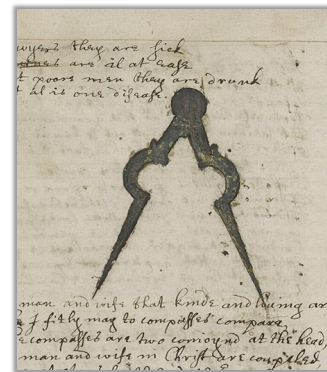 wyers they are sick
are il at ease
t poore men they are drunk
t al is one disease.
man and wife that kinde and loving ar
I fitly may to compasses compare
e compasses are two conioynd at the head,
man and wife in Christ are coupled,